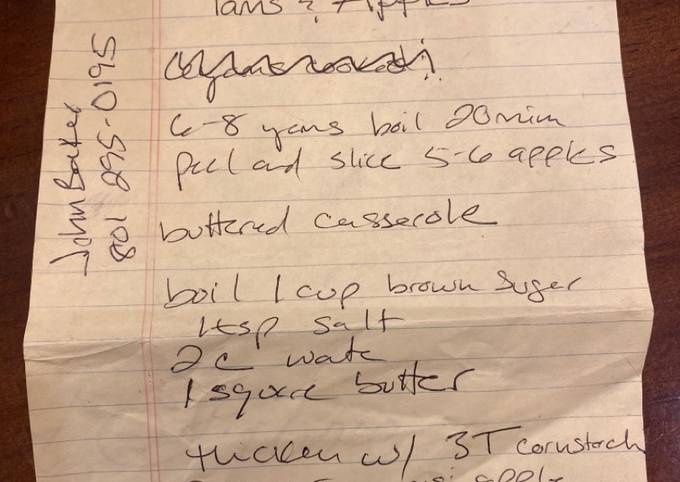 Yams & Apples
6-8 yams boil 20 min
peel and slice 5-6 apples
buttered casserole
boil 1 cup brown sugar
1 tsp salt
2 c wate
1 square butter
thicken w/ 3T cornstarch
apple
John Baker
801 295-0195